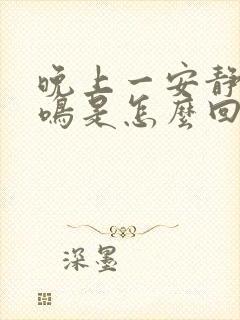 晚上一安靜
鳴是怎麼回
深墨